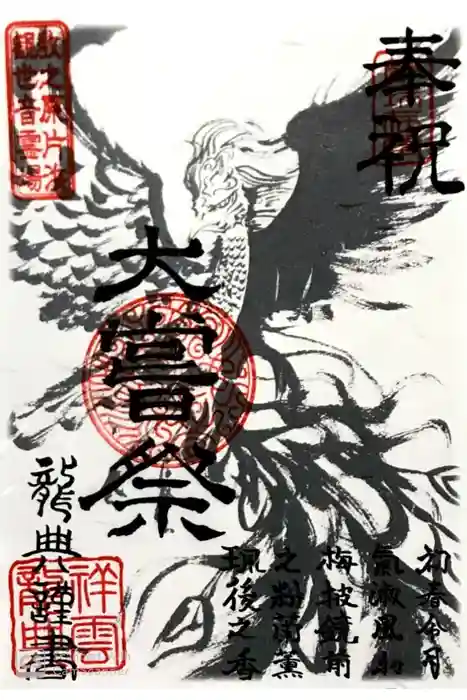 奉祝
大嘗祭
初春令月
氣淑風和
梅披鏡前
之粉蘭薫
珮後之香
龍典謹書
觀世音霊場
祥雲
龍典